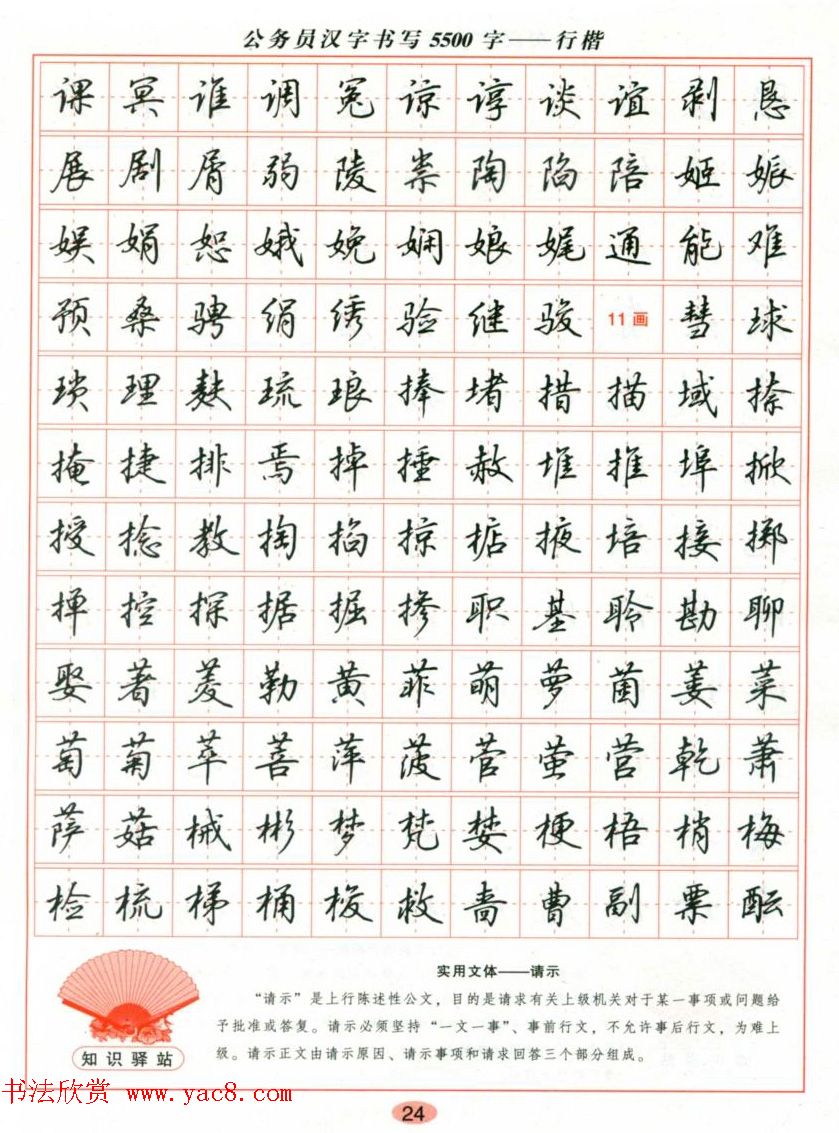 公务员汉字书写 5500 字——行楷
课 冥 谁 调 冤 谅 谆 谈 谊 剥 恳
展 剧 屑 弱 陵 祟 陶 陷 陪 姬 娠
娱 娟 恕 娥 娩 娴 娘 娓 通 能 难
预 桑 骋 绢 绣 验 继 骏 11画 彗 球
琐 理 麸 琉 琅 捧 堵 措 描 域 捺
掩 捷 排 焉 掉 捶 赦 堆 推 埠 掀
授 捻 教 掏 掐 掠 掂 掖 培 接 掷
掸 控 探 据 掘 掺 职 基 聆 勘 聊
娶 著 菱 勒 黄 菲 萌 萝 菌 萎 菜
萄 菊 萃 菩 萍 菠 菅 萤 营 乾 萧
萨 菇 械 彬 梦 梵 婪 梗 梧 梢 梅
检 梳 梯 桶 梭 救 啬 曹 副 票 酝
实用文体——请示
“请示”是上行陈述性公文，目的是请求有关上级机关对于某一事项或问题给
予批准或答复。请示必须坚持“一文一事”、事前行文，不允许事后行文，为难上
级。请示正文由请示原因、请示事项和请求回答三个部分组成。
知识驿站
书法欣赏 www.yac8.com
24